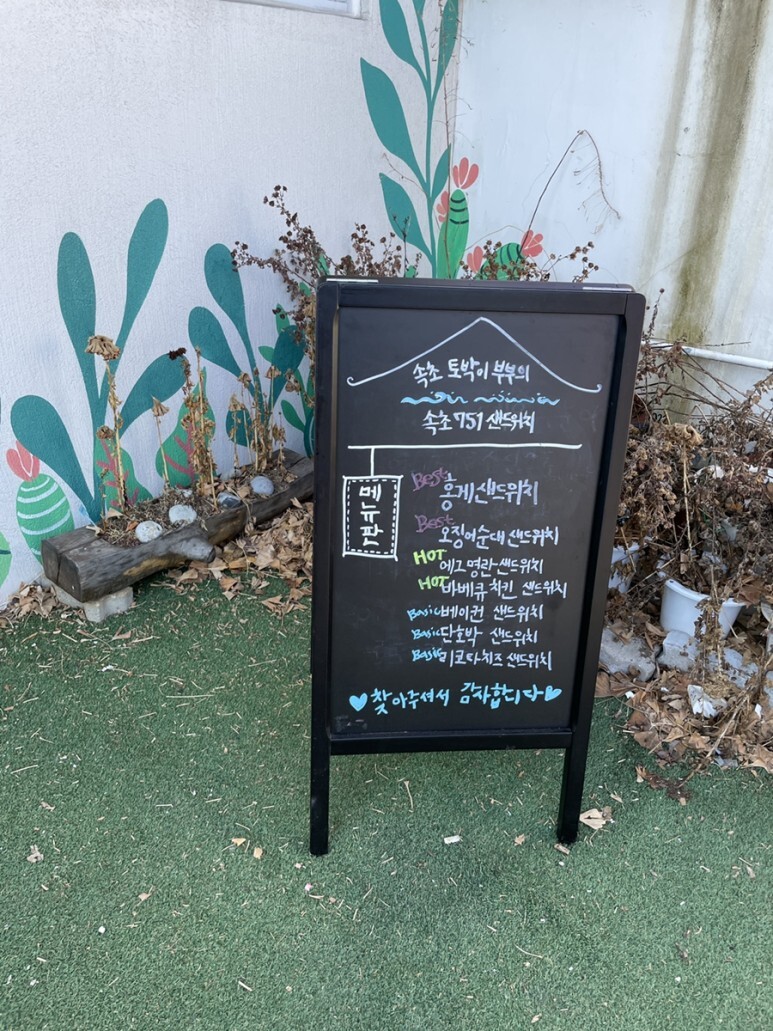 속초 토박이 부부의
속초751 샌드위치
메뉴판
Best 홍게샌드위치
Best 오징어순대샌드위치
HOT 에그명란샌드위치
HOT 바베큐치킨 샌드위치
Basic 베이컨 샌드위치
Basic 단호박 샌드위치
Basic 리코타치즈 샌드위치
찾아주셔서 감사합니다